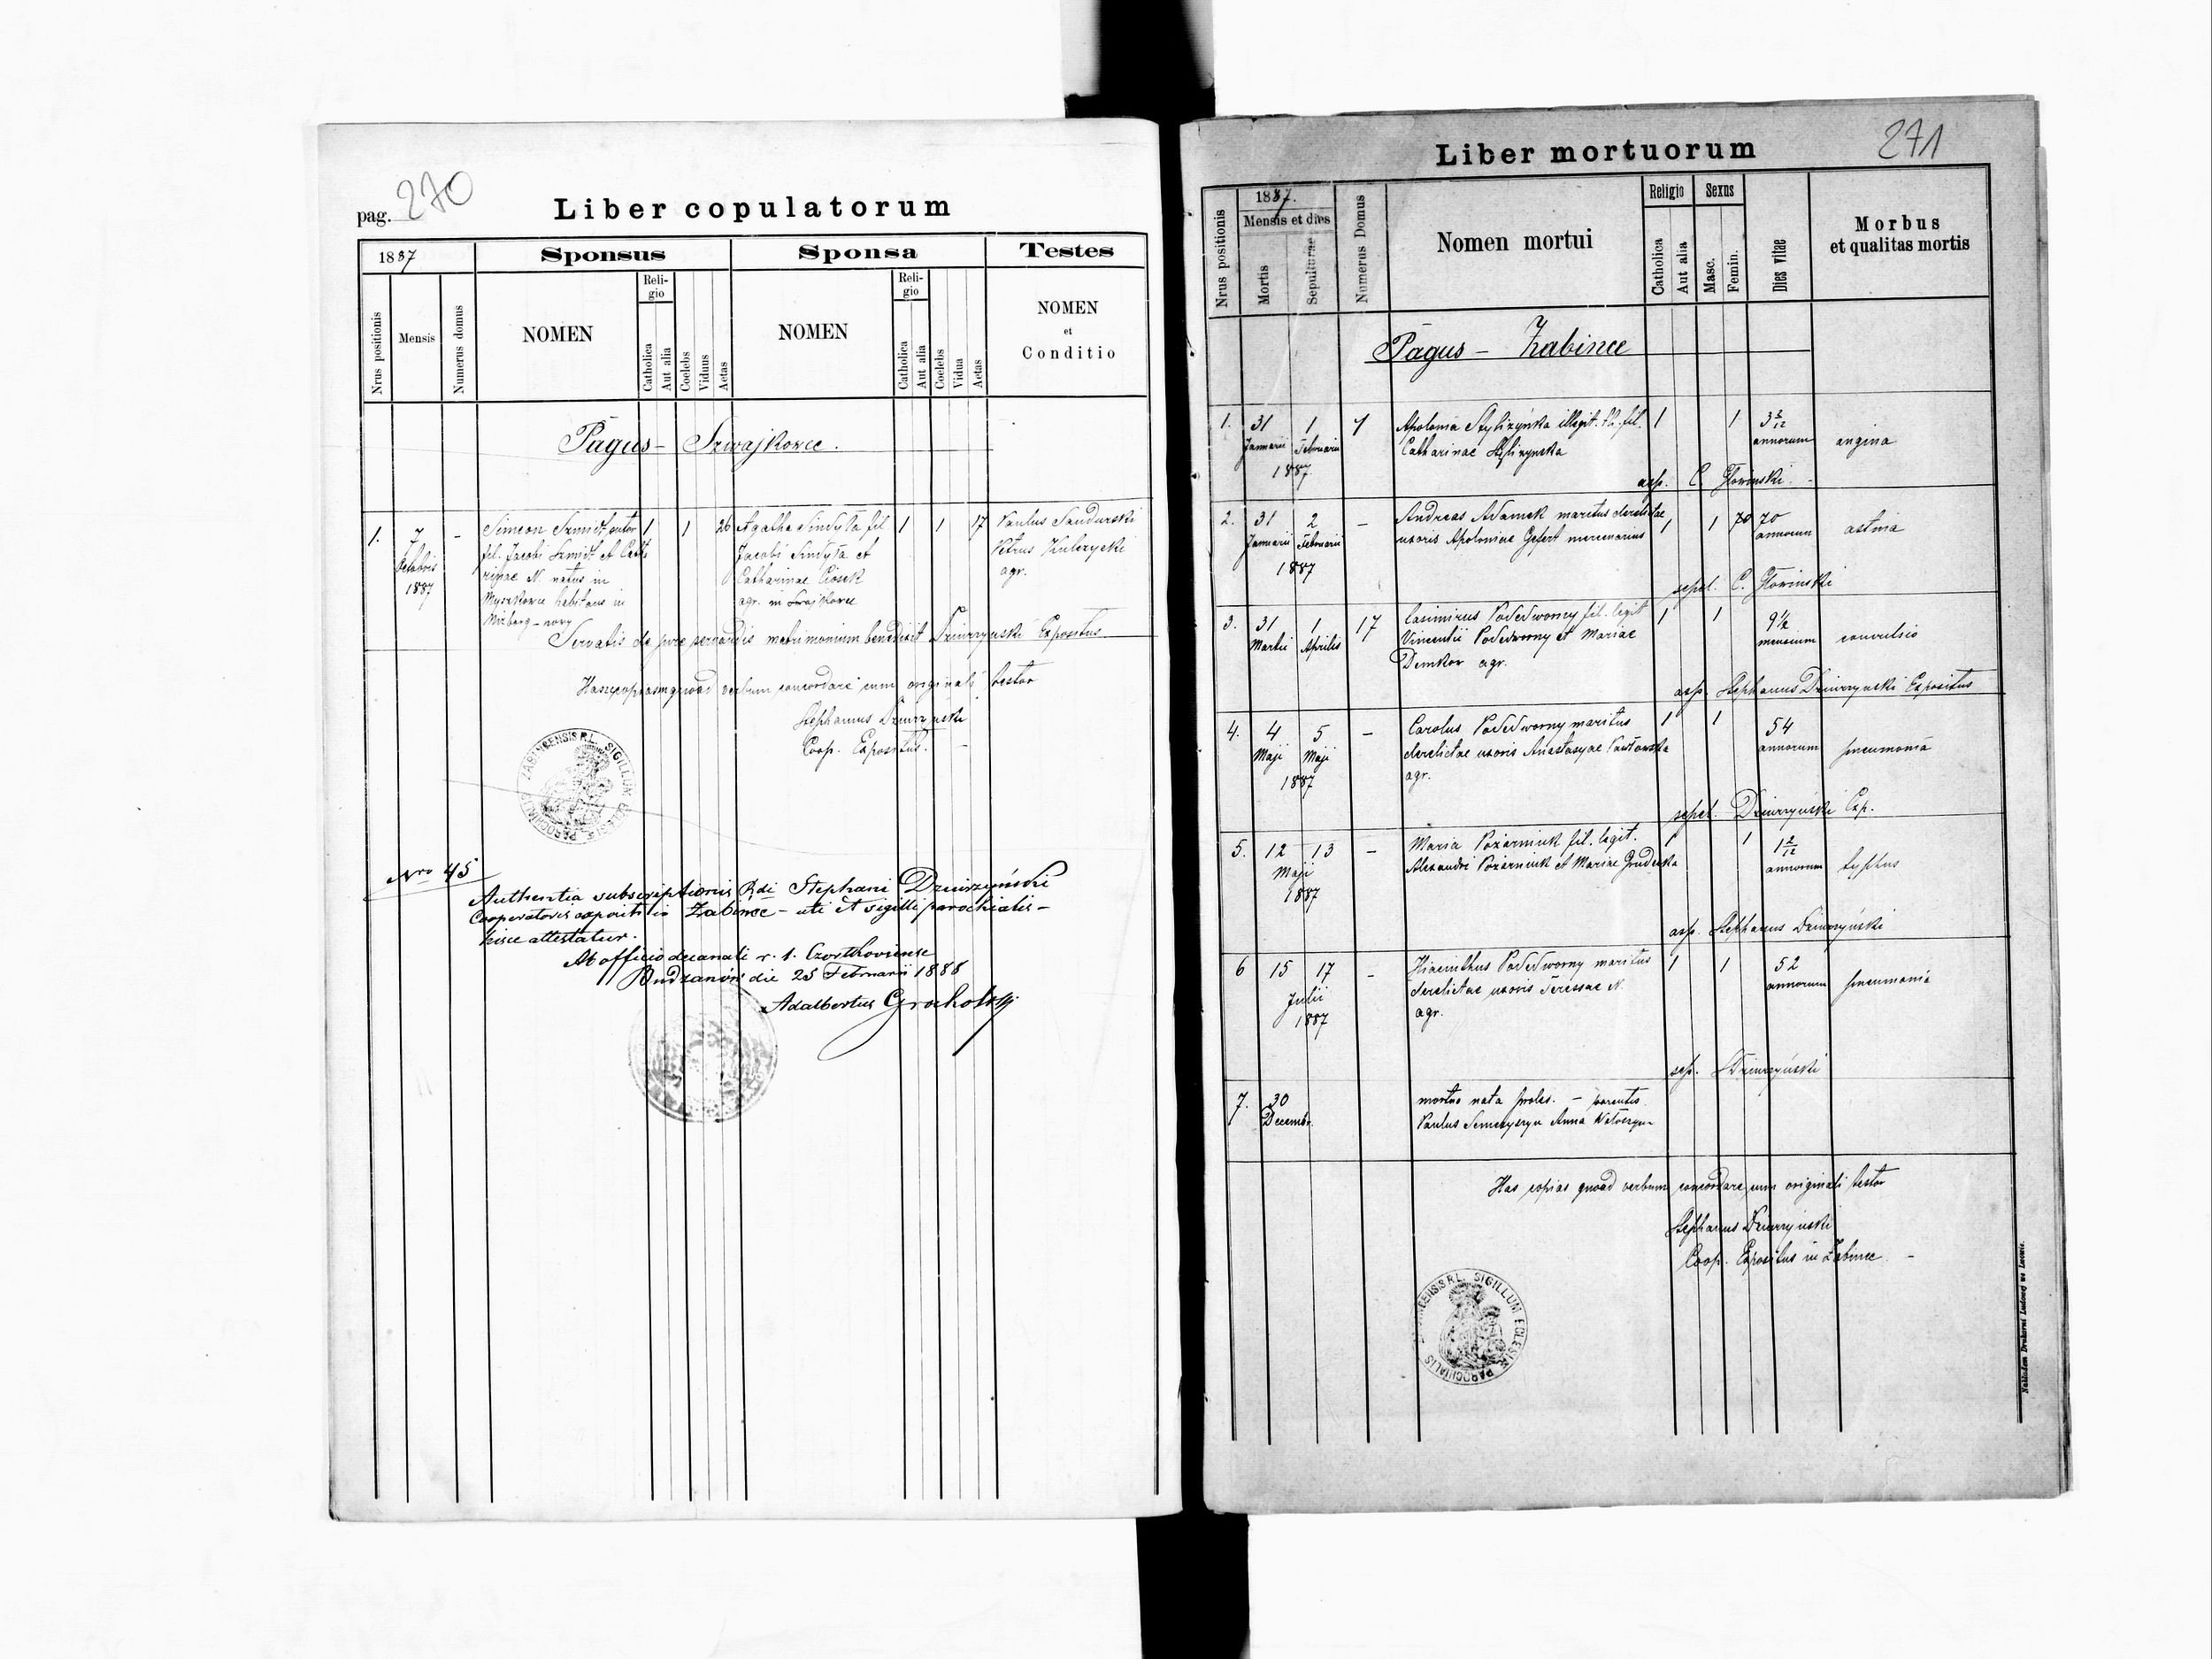 pag. 270
Liber copulatorum
1887
Sponsus
Sponsa
Testes
Nrus positionis
Mensis
Numerus domus
NOMEN
Religio
Catholica
Aut alia
Coelebs
Viduus
Aetas
NOMEN
Religio
Catholica
Aut alia
Coelebs
Vidua
Aetas
NOMEN
et
Conditio
Pagus - Szwajkowce.
1. 7 - Simeon Szmidt 1 1 26 Agatha Sindyła fil 1 1 17 Paulus Sandurski
Octobris fil. Jacobi Szmidt et Catha Jacobi Sindyła et Petrus Kulczycki
rinae N. natus in Catharinae Ciosek agr.
1887 Myszkowce habitans in agr. in Szwajkowce
Mizberg - nowy
Servatis de jure servandis matrimonium benedixit Dziurzyński Expositus
Hanc copiam quoad verbum concordare cum originali testor
Stephanus Dziurzyński
Coop. Expositus.
SIGILLUM ECLESIÆ PAROCHIALIS ZABINCENSIS R.L.
Nro 45
Authentia subscriptionis Rdi Stephani Dziurzyński
Cooperatoris expositi in Żabińce - uti et sigilli parochialis -
hisce attestatur.
Ab officio decanali r. l. Czortkoviense
Budzanów die 25 Februarii 1888
Adalbertus Grocholsky
271
Liber mortuorum
Nrus positionis
1887.
Mensis et dies
Mortis
Sepulturae
Numerus Domus
Nomen mortui
Religio
Catholica
Aut alia
Sexus
Masc.
Femin.
Dies vitae
Morbus
et qualitas mortis
Pagus - Żabince
1. 31 1 7 Apolonia illegit. th. fil. 1 1 3 2/12
Januarii Februarii Catharinae annorum angina
1887
asp. C. Głowinski.
2. 31 2 - Andreas Adamek maritus derelictae 1 1 70 70
Januarii Februarii uxoris Apoloniae Gefert mercenarius annorum astma
1887
sepel. C. Głowinski
3. 31 1 17 Casimirus Podedworny fil. legit 1 1 9 1/2
Martii Aprilis Vincentii Podedworny et Mariae mensium convulsio
Demkow agr.
asp. Stephanus Dziurzyński Expositus
4. 4 5 - Carolus Podedworny maritus 1 1 54
Maji Maji derelictae uxoris Anastasyae Pawłowska annorum pneumonia
1887 agr.
sepel. Dziurzyński Exp.
5. 12 13 - Maria Pożarniuk fil. legit. 1 1 1 2/12
Maji Alexandri Pożarniuk et Mariae annorum typhus
1887
asp. Stephanus Dziurzyński
6 15 17 - Hiacinthus Podedworny maritus 1 1 52
Julii derelictae uxoris Teressae N. annorum pneumonia
1887 agr.
sep. Dziurzyński
7. 30 mortuo nata proles. - parentes
Decembr. Paulus Anna
Has copias quoad verbum concordare cum originali testor
Stephanus Dziurzyński
Coop. Expositus in Żabince
SIGILLUM ECLESIÆ PAROCHIALIS ZABINCENSIS R.L.
Nakładem Drukarni Ludowej we Lwowie.